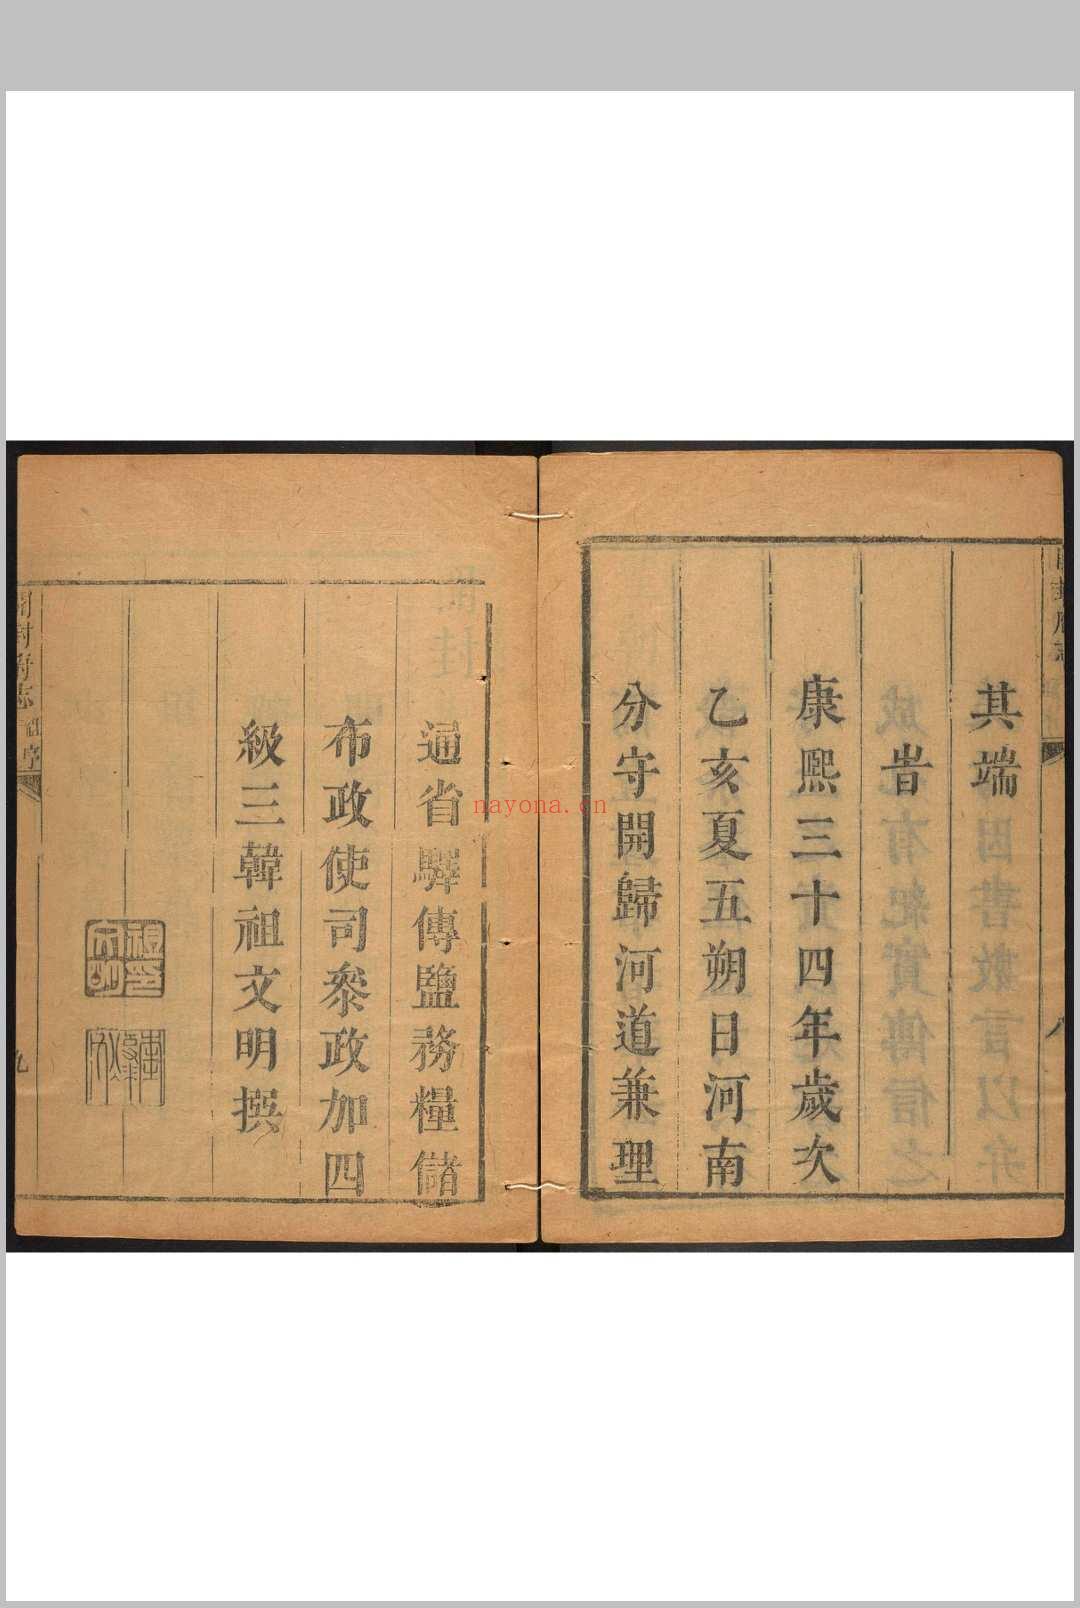 其端
旹
康熙三十四年歲次
乙亥夏五朔日河南
分守開歸河道兼理
通省驛傳鹽務糧儲
布政使司叅政加四
級三韓祖文明撰
開封府志
祖序
九
nayona.cn